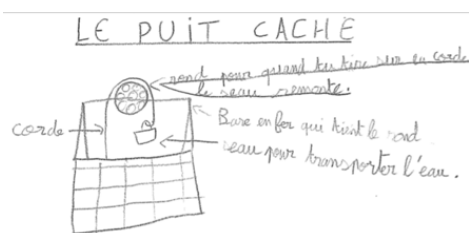 LE PUiT CACHÉ
rond pour quant tu tire sur la corde
le seau remonte.
corde
Bare en fer qui tient le rond
seau pour transporter l'éau.